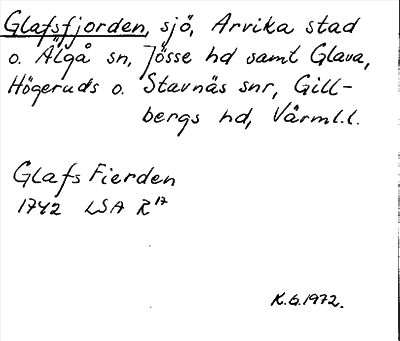 Glafsfjorden, sjö, Arvika stad
o. Älgå sn, Jösse hd samt Glava,
Högeruds o. Stavnäs snr, Gill-
bergs hd, Värml.l.
Glafs Fierden
1742 LSA R17
K.G.1972.